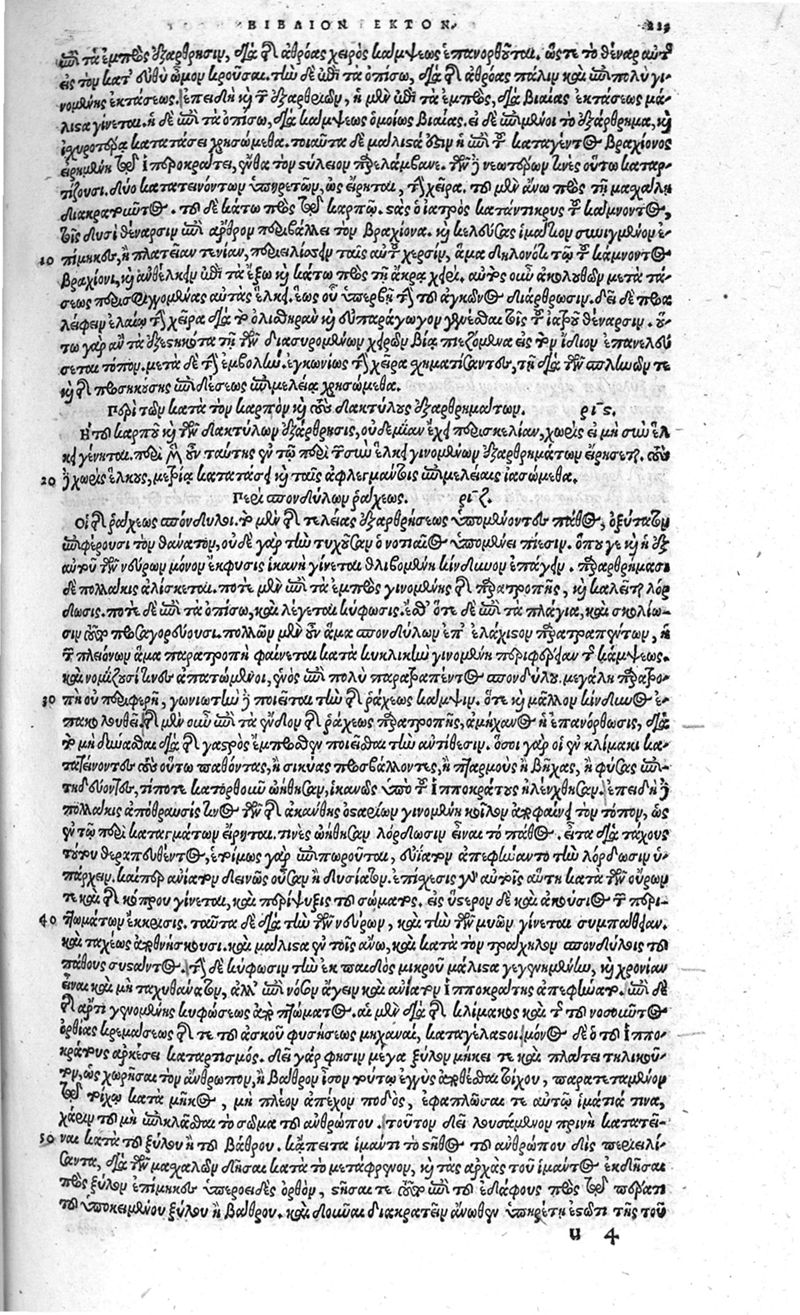 ΒΙΒΛΙΟΝ ΕΚΤΟΝ.
ἐπὶ τὰ ἐμπρὸς ἐξάρθρησιν, διὰ τῆς ἀθρόας χειρὸς κάμψεως ἐπανορθοῦται. ὥστε τὸ θέναρ αὐτῆς
εἰς τὸν κατ' εὐθὺ ὦμον κροῦσαι. τὴν δὲ ἐπὶ τὰ ὀπίσω, διὰ τῆς ἀθρόας πάλιν καὶ ἐπὶ πολὺ γι-
νομένης ἐκτάσεως. ἐπειδὴ καὶ τῶν ἐξαρθρημάτων, ἡ μὲν ἐπὶ τὰ ἐμπρὸς, διὰ βιαίας ἐκτάσεως μά-
λιστα γίνεται. ἡ δὲ ἐπὶ τὰ ὀπίσω, διὰ κάμψεως ὁμοίως βιαίας. εἰ δὲ ἐπιμένοι τὸ ἐξάρθρημα, καὶ
ἰσχυροτέρα κατατάσει χρησώμεθα. τοιαῦτα δὲ μάλιστά ἐστιν ἡ ἐπὶ τοῦ καταγέντος βραχίονος
εἰρημένη τῷ ἱπποκράτει, ἔνθα τὸν στύλεον παρελάμβανε. τῶν δὲ νεωτέρων τινὲς οὕτω καταρ-
τίζουσι. δύο κατατεινόντων ὑπηρετῶν, ὡς εἴρηται, τὴν χεῖρα. τοῦ μὲν ἄνω πρὸς τῇ μασχάλῃ
διακρατοῦντος. τοῦ δὲ κάτω πρὸς τῷ καρπῷ. στὰς ὁ ἰατρὸς κατάντικρυς τοῦ κάμνοντος,
τοῖς δυσὶ θέναρσιν ἐπὶ ἄρθρον περιβάλλει τὸν βραχίονα. καὶ κελεύσας ἱμάτιον συνειγμένον ἐ-
10 πίμηκες, ἢ πλατεῖαν τενίαν, περιειλίσσειν ταῖς αὐτοῦ χερσὶν, ἅμα δηλονότι τῷ τοῦ κάμνοντος
βραχίονι, καὶ ἀνθέλκειν ἐπὶ τὰ ἔξω καὶ κάτω πρὸς τῇ ἄκρᾳ χειρί. αὐτὸς οὖν ἀκολουθῶν μετὰ τά-
σεως περισφιγγομένας αὐτὰς ἕλκει. ἕως οὗ ὑπερβῇ τὴν τοῦ ἀγκῶνος διάρθρωσιν. δεῖ δὲ προα-
λείφειν ἐλαίῳ τὴν χεῖρα διὰ τὸ ὀλισθηρὰν καὶ εὐπαράγωγον γενέσθαι τοῖς τοῦ ἰατροῦ θέναρσιν. οὕ-
τω γὰρ ἂν τὰ ἐξεστηκότα τῇ τῶν διασυρομένων χειρῶν βίᾳ πιεζόμενα εἰς τὸν ἴδιον ἐπανελεύ
σεται τόπον. μετὰ δὲ τὴν ἐμβολὴν, ἐγγωνίως τὴν χεῖρα σχηματίσαντες, τῇ διὰ τῶν σπληνῶν τε
καὶ τῆς προσηκούσης ἐπιδέσεως ἐπιμελείᾳ χρησώμεθα.
Περὶ τῶν κατὰ τὸν καρπὸν καὶ τοὺς δακτύλους ἐξαρθρημάτων. ριϛ.
Ἡ τοῦ καρποῦ καὶ τῶν δακτύλων ἐξάρθρησις, οὐδεμίαν ἔχει περισκελίαν, χωρὶς εἰ μὴ σὺν ἕλ
κει γένηται. περὶ μὲν οὖν ταύτης ἐν τῷ περὶ τῶν σὺν ἕλκει γινομένων ἐξαρθρημάτων εἰρήσεται. τοὺς
20 δὲ χωρὶς ἕλκους, μετρίᾳ κατατάσει καὶ ταῖς ἀφλεγμάντοις ἐπιμελείαις ἰασώμεθα.
Περὶ σπονδύλων ῥάχεως. ριζ.
Οἱ τῆς ῥάχεως σπόνδυλοι, τὸ μὲν τῆς τελείας ἐξαρθρήσεως ὑπομένοντες πάθος, ὀξύτατον
ἐπιφέρουσι τὸν θάνατον, οὐδὲ γὰρ τὴν τυχοῦσαν ὁ νωτιαῖος ὑπομένει πίεσιν. ὅπου γε καὶ ἡ ἐξ
αὐτοῦ τῶν νεύρων μόνον ἔκφυσις ἱκανὴ γίνεται θλιβομένη κίνδυνον ἐπάγειν. παραθρήμασι
δὲ πολλάκις ἁλίσκεται. ποτὲ μὲν ἐπὶ τὰ ἐμπρὸς γινομένης τῆς παρατροπῆς, καὶ καλεῖται λόρ
δωσις. ποτὲ δὲ ἐπὶ τὰ ὀπίσω, καὶ λέγεται κύφωσις. ἔσθ' ὅτε δὲ ἐπὶ τὰ πλάγια, καὶ σκολίω-
σιν αὐτὸ προσαγορεύουσι. πολλῶν μὲν οὖν ἅμα σπονδύλων ἐπ' ἐλάχιστον παρατραπέντων, ἡ
τῶν πλειόνων ἅμα παρατροπὴ φαίνεται κατὰ κυκλικὴν γινομένη περιφέρειαν τῆς κάμψεως.
καὶ νομίζουσί τινες ἀπατώμενοι, ἑνὸς ἐπὶ πολὺ παραβαπέντος σπονδύλου. μεγάλη παρατρο-
30 πὴ οὐ περιφερῆ, γωνιωτὴν δὲ ποιεῖται τὴν τῆς ῥάχεως κάμψιν. ὅτε καὶ μᾶλλον κίνδυνος ἐ-
πακολουθεῖ. τῆς μὲν οὖν ἐπὶ τὰ ἔνδον τῆς ῥάχεως παρατροπῆς, ἀμήχανος ἡ ἐπανόρθωσις, διὰ
τὸ μὴ δύνασθαι διὰ τῆς γαστρὸς ἔμπροσθεν ποιεῖσθαι τὴν ἀντίθεσιν. ὅσοι γὰρ οἱ ἐν κλίμακι κα-
τατείνοντες τοὺς οὕτω παθόντας, ἢ σικύας προσβάλλοντες, ἢ πταρμοὺς ἢ βῆχας, ἢ φύσας ἐπι-
τηδεύοντες, τί ποτε κατορθοῦν ᾠήθησαν, ἱκανῶς ὑπὸ τοῦ Ἱπποκράτους ἠλέγχθησαν. ἐπειδὴ δὲ
πολλάκις ἀπόθραυσίς τινος τῶν τῆς ἀκάνθης ὀσταρίων γινομένη κοῖλον ἀποφαίνει τὸν τόπον, ὡς
ἐν τῷ περὶ καταγμάτων εἴρηται. τινὲς ᾠήθησαν λόρδωσιν εἶναι τὸ πάθος. εἶτα διὰ τάχους
τούτου θεραπευθέντος, ἑτοίμως γὰρ ἐπιπωροῦται, εὐΐατον ἀπεφήναντο τὴν λόρδωσιν ὑ-
πάρχειν. καίπερ ἀνίατον δεινῶς οὖσαν ἢ δυσίατον. ἐπίσχεσις γὰρ αὐτοῖς αὕτη κατὰ τῶν οὔρων
τε καὶ τῆς κόπρου γίνεται, καὶ περίψυξις τοῦ σώματος. εἰς ὕστερον δὲ καὶ ἀκούσιος τῶν περι-
40 ττωμάτων ἔκκρισις. ταῦτα δὲ διὰ τὴν τῶν νεύρων, καὶ τὴν τῶν μυῶν γίνεται συμπάθειαν.
καὶ ταχέως ἀποθνήσκουσι. καὶ μάλιστα ἐν τοῖς ἄνω, καὶ κατὰ τὸν τράχηλον σπονδύλοις τοῦ
πάθους συστάντος. τὴν δὲ κύφωσιν τὴν ἐκ παιδὸς μικροῦ μάλιστα γεγενημένην, καὶ χρονίαν
εἶναι καὶ μὴ ταχυθάνατον, ἀλλ' ἐπὶ νόσον ἄγειν καὶ ἀνίατον Ἱπποκράτης ἀπεφήνατο. ἐπὶ δὲ
τῆς ἄρτι γενομένης κυφώσεως ἀπὸ πτώματος. αἱ μὲν διὰ τῆς κλίμακος καὶ τῆς τοῦ νοσοῦντος
ὀρθίας κρεμάσεως τῆς τε τοῦ ἀσκοῦ φυσήσεως μηχαναὶ, καταγέλαστοι. μόνος δὲ ὁ τοῦ ἱππο-
κράτους ἀρκέσει καταρτισμός. δεῖ γάρ φησιν μέγα ξύλον μήκει τε καὶ πλάτει τηλικοῦ-
τον, ὡς χωρῆσαι τὸν ἄνθρωπον, ἢ βάθρον ἴσον τούτῳ ἐγγὺς ἀποθέσθαι τοίχου, παρατεταμένον
τῷ τοίχῳ κατὰ μῆκος, μὴ πλέον ἀπέχον ποδὸς, ἐφαπλῶσαί τε αὐτῷ ἱμάτιά τινα,
χάριν τοῦ μὴ ἐπικλᾶσθαι τὸ σῶμα τοῦ ἀνθρώπου. τοῦτον δεῖ λουσάμενον πρηνῆ κατατεῖ-
50 ναι κατὰ τοῦ ξύλου ἢ τοῦ βάθρου. κἄπειτα ἱμάντι τὸ στῆθος τοῦ ἀνθρώπου δὶς περιειλί-
ξαντα, διὰ τῶν μασχαλῶν δῆσαι κατὰ τὸ μετάφρενον, καὶ τὰς ἀρχὰς τοῦ ἱμάντος ἐκδῆσαι
πρὸς ξύλον ἐπίμηκες ὑπεροειδὲς ὀρθὸν, στῆσαί τε αὐτὸ ἐπὶ τοῦ ἐδάφους πρὸς τῷ πέρατι
τοῦ ὑποκειμένου ξύλου ἢ βάθρου. καὶ δοῦναι διακρατεῖν ἄνωθεν ὑπηρέτῃ ἑστῶτι τῆς τοῦ
u 4